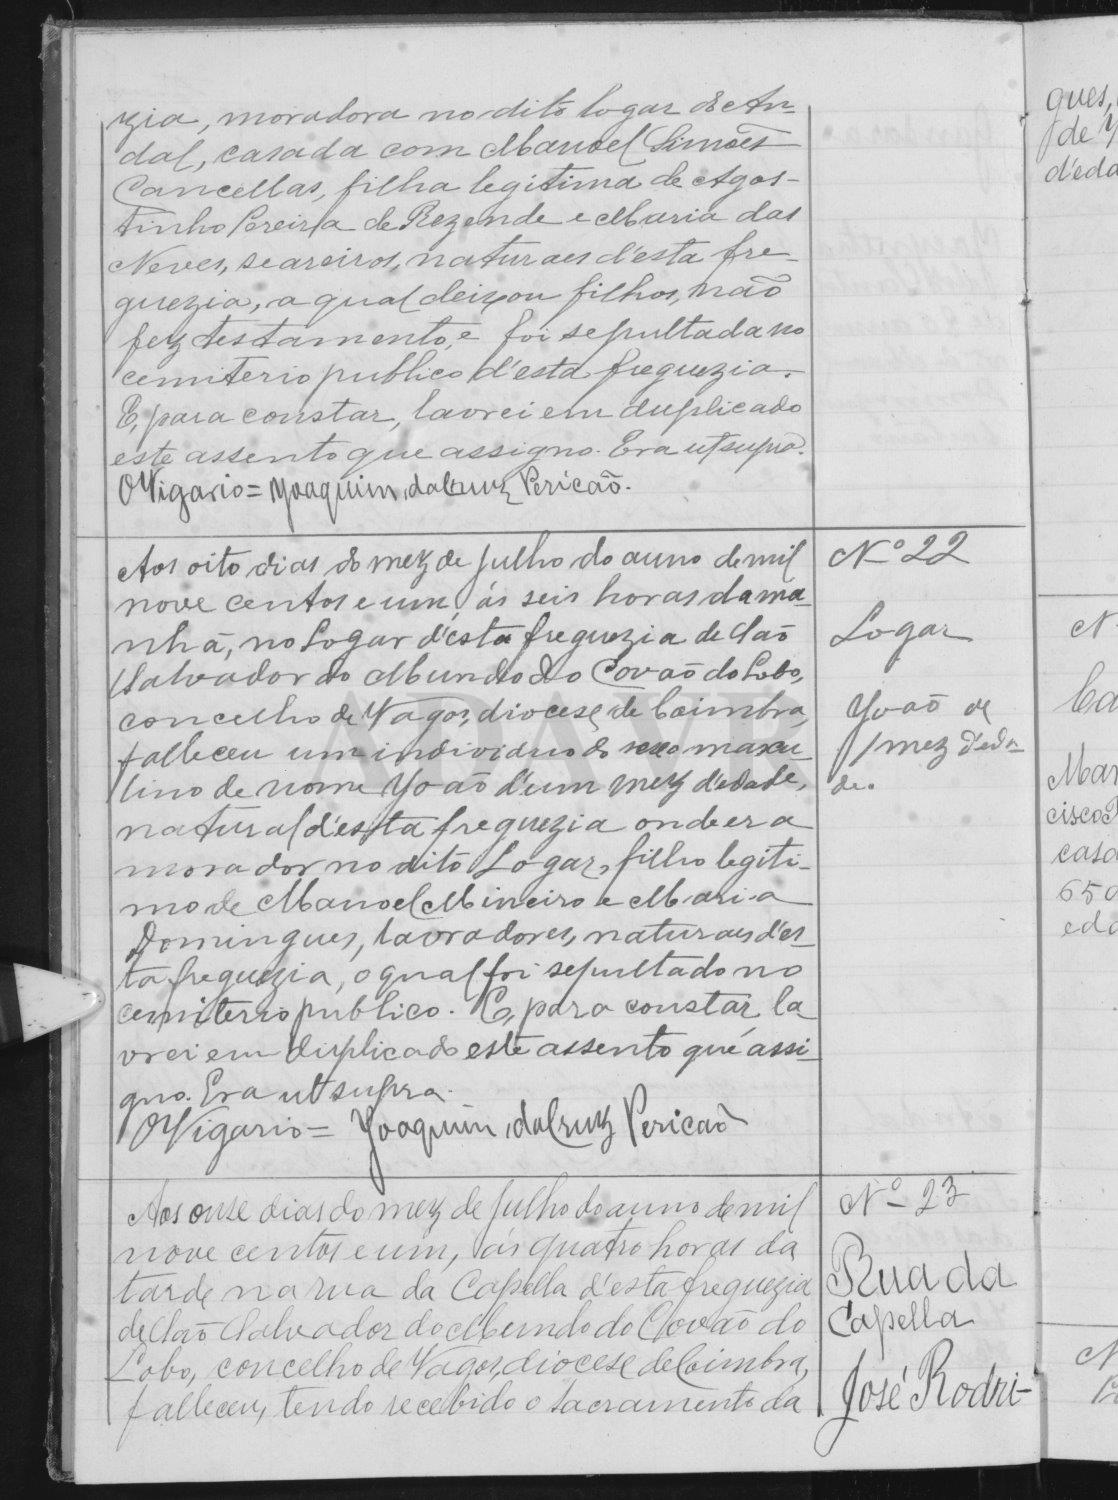 zia, moradora no dito logar de An-
dal, casada com Manoel Simões
Cancellas, filha legitima de Agos-
tinho Pereira de Rezende e Maria das
Neves, seareiros, naturaes d'esta fre-
guezia, a qual deixou filhos, não
fez testamento, e foi sepultada no
cemiterio publico d'esta freguezia.
E, para constar, lavrei em duplicado
este assento que assigno. Era ut supra.
O Vigario = Joaquim da Cruz Pericão.
Nº 22
Logar
João de
1 mez d'eda-
de.
Aos oito dias do mez de Julho do anno de mil
nove centos e um, ás seis horas da ma-
nhã, no Logar d'esta freguezia de São
Salvador do Mundo do Covão do Lobo,
concelho de Vagos, diocese de Coimbra,
falleceu um individuo do sexo mascu-
lino de nome João d'um mez d'edade,
natural d'esta freguezia onde era
morador no dito Logar, filho legiti-
mo de Manoel Mineiro e Maria
Domingues, lavradores, naturaes d'es-
ta freguezia, o qual foi sepultado no
cemiterio publico. E, para constar la
vrei em duplicado este assento que assi-
gno. Era ut supra.
O Vigario = Joaquim da Cruz Pericão
Nº 23
Rua da
Capella
José Rodri-
Aos onse dias do mez de Julho do anno de mil
nove centos e um, ás quatro horas da
tarde na rua da Capella d'esta freguezia
de São Salvador do Mundo do Covão do
Lobo, concelho de Vagos, diocese de Coimbra,
falleceu, tendo recebido o sacramento da
gues,
de
d'eda
Mar
cisco
casa
65
eda